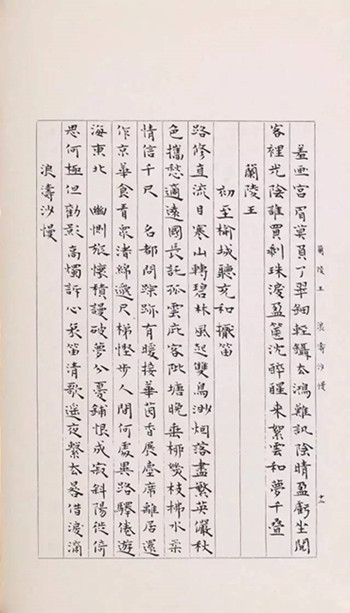 蘭陵王 浪濤沙慢
羞画宮眉莫負了翠鈿輕鑷太鴻難訊陰晴盈虧坐閱
客裡光陰誰買剩珠淚盈篋沈醉醒來絮雲和夢千疊
蘭陵王
初至榆城聽充和擫笛
路修直流目寒山轉碧林風起雙鳥渺烟落盡繁英儼秋
色攜愁適遠國長託孤雲庇客陂塘晚垂柳幾枝拂水柔
情信千尺 名都問蹤跡有暖接華茵香展塵席離居還
作京華食看眾渚綿邈尺梯慳步人間何處異路驛倦遊
海東北 幽惻旅懷積謾破夢分憂鋪恨成寂斜陽徙倚
思何極但勸影高燭訴心長笛清歌遙夜繫太晷借淚滴
浪濤沙慢